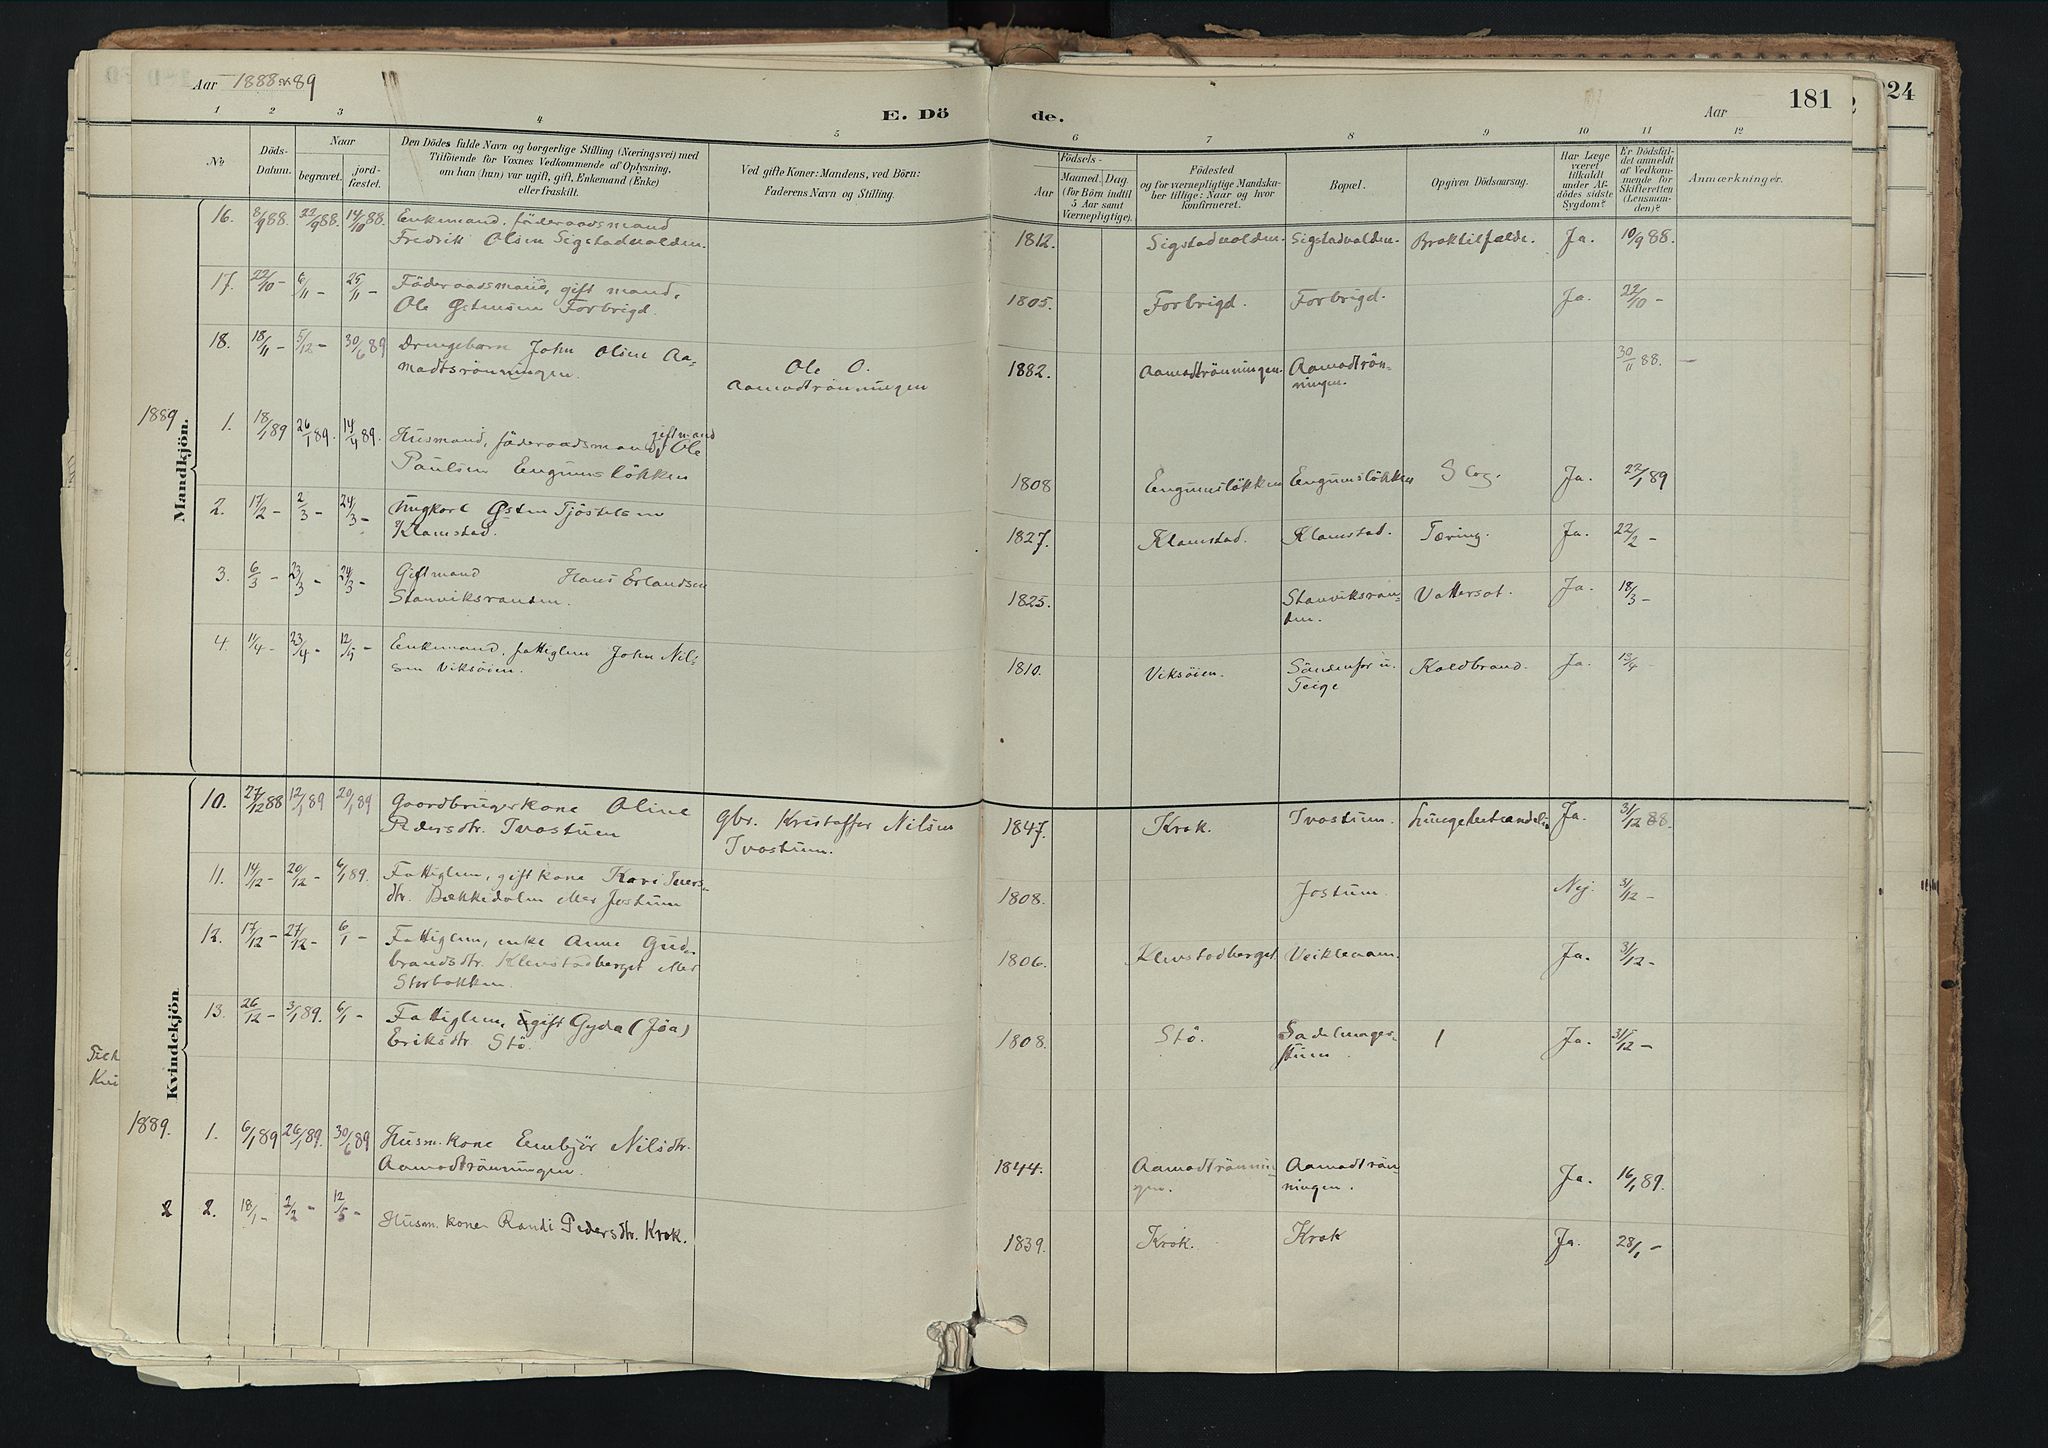 Aar 1888 & 89
E. Dö
de.
Aar
181
224
1 2 3 4 5 6 7 8 9 10 11 12
No
Döds-
Datum.
Naar
begravet.
jord-
fæstet.
Den Dödes fulde Navn og borgerlige Stilling (Næringsvei) med
Tilföiende for Voxnes Vedkommende af Oplysning,
om han (hun) var ugift, gift, Enkemand (Enke)
eller fraskilt.
Ved gifte Koner: Mandens, ved Börn:
Faderens Navn og Stilling.
Födsels-
Aar
Maaned. Dag
(for Börn indtil
5 Aar samt
Værnepligtige).
Födested
og for værnepligtige Mandska-
ber tillige: Naar og hvor
konfirmeret.
Bopæl.
Opgiven Dödsaarsag.
Har Læge
været
tilkaldt
under Af-
dödes sidste
Sygdom?
Er Dödsfal-
det anmeldt
af Vedkom-
mende for
Skifteretten
(Lensman-
den)?
Anmærkninger.
Mandkjön.
16. 8/9 88 22/9 88. 14/10 88 Enkemand, föderaadsmand
Fredrik Olsen Sigstadvolden. 1812. Sigstadvolden. Sigstadvolden. Braktilfælde. Ja. 10/9 88.
17. 22/10 - 6/11 - 25/11 - Föderaadsmand, gift mand,
Ole Østensen Forbrigd. 1805. Forbrigd. Forbrigd. Ja. 22/10 -
18. 18/11 - 5/12 - 30/6 89 Drengebarn John Olsen Aa-
madtsrönningen. Ole O.
Aamodtrönningen 1882. Aamodtrönningen. Aamodtrön-
ningen. 30/11 88. -
1889
1. 18/1 89 26/1 89. 14/4 89. Husmand, föderaadsmand, giftmand Ole
Paulsen Engumslökken 1808 Engumslökken Engumslökken Slag. Ja. 22/1 89
2. 17/2 - 2/3 - 24/3 - Ungkarl Østen Tjöstelsen
Klamstad. 1827. Klamstad. Klamstad. Tæring. Ja. 22/2 -
3. 6/3 - 23/3 - 24/3 - Giftmand Hans Erlandsen
Stanviksranden. 1825. Stanviksran-
den. Vattersot. Ja. 18/3 -
4. 11/4 - 23/4 - 12/5 - Enkemand, fattiglem John Nil-
sen Viksöien. 1810. Viksöien. Söndenfor u.
Teige Koldbrand. Ja. 13/4 -
Kvindekjön
10. 27/12 88 12/1 89 20/1 89 Gaardbrugerkone Oline
Pedersdtr. Tvostuen gbr. Kristoffer Nilsen
Tvostuen. 1847. Krok. Tvostuen. Ja. 31/12 88.
11. 14/12 - 20/12 - 6/1 89. Fattiglem, gift kone Kari Ivers-
dtr. Bækkedalen eller Jostuen 1808. Jostuen. Nej. 31/12 -
12. 17/12 - 27/12 - 6/1 - Fattiglem, enke Anne Gud-
brandsdtr. Klevstadberget eller
Storbakken. 1806. Klevstadberget. Ja. 31/12 -
13. 26/12 - 3/1 89. 6/1 - Fattiglem, ugift Gyda (Jöa)
Eriksdtr. Stö. 1808. Stö. Sadelmager-
stuen. Ja. 31/12 -
1889.
1. 6/1 89 26/1 89. 30/6 89 Husm. kone Embjör Nilsdtr.
Aamodtrönningen. 1844. Aamodtrönnin-
gen. Aamodtrön
ningen. Ja. 16/1 89.
2 2. 18/1 - 2/2 - 12/5 - Husm. kone Randi Pedersdtr. Krok. 1839. Krok. Krok Ja. 28/1 -